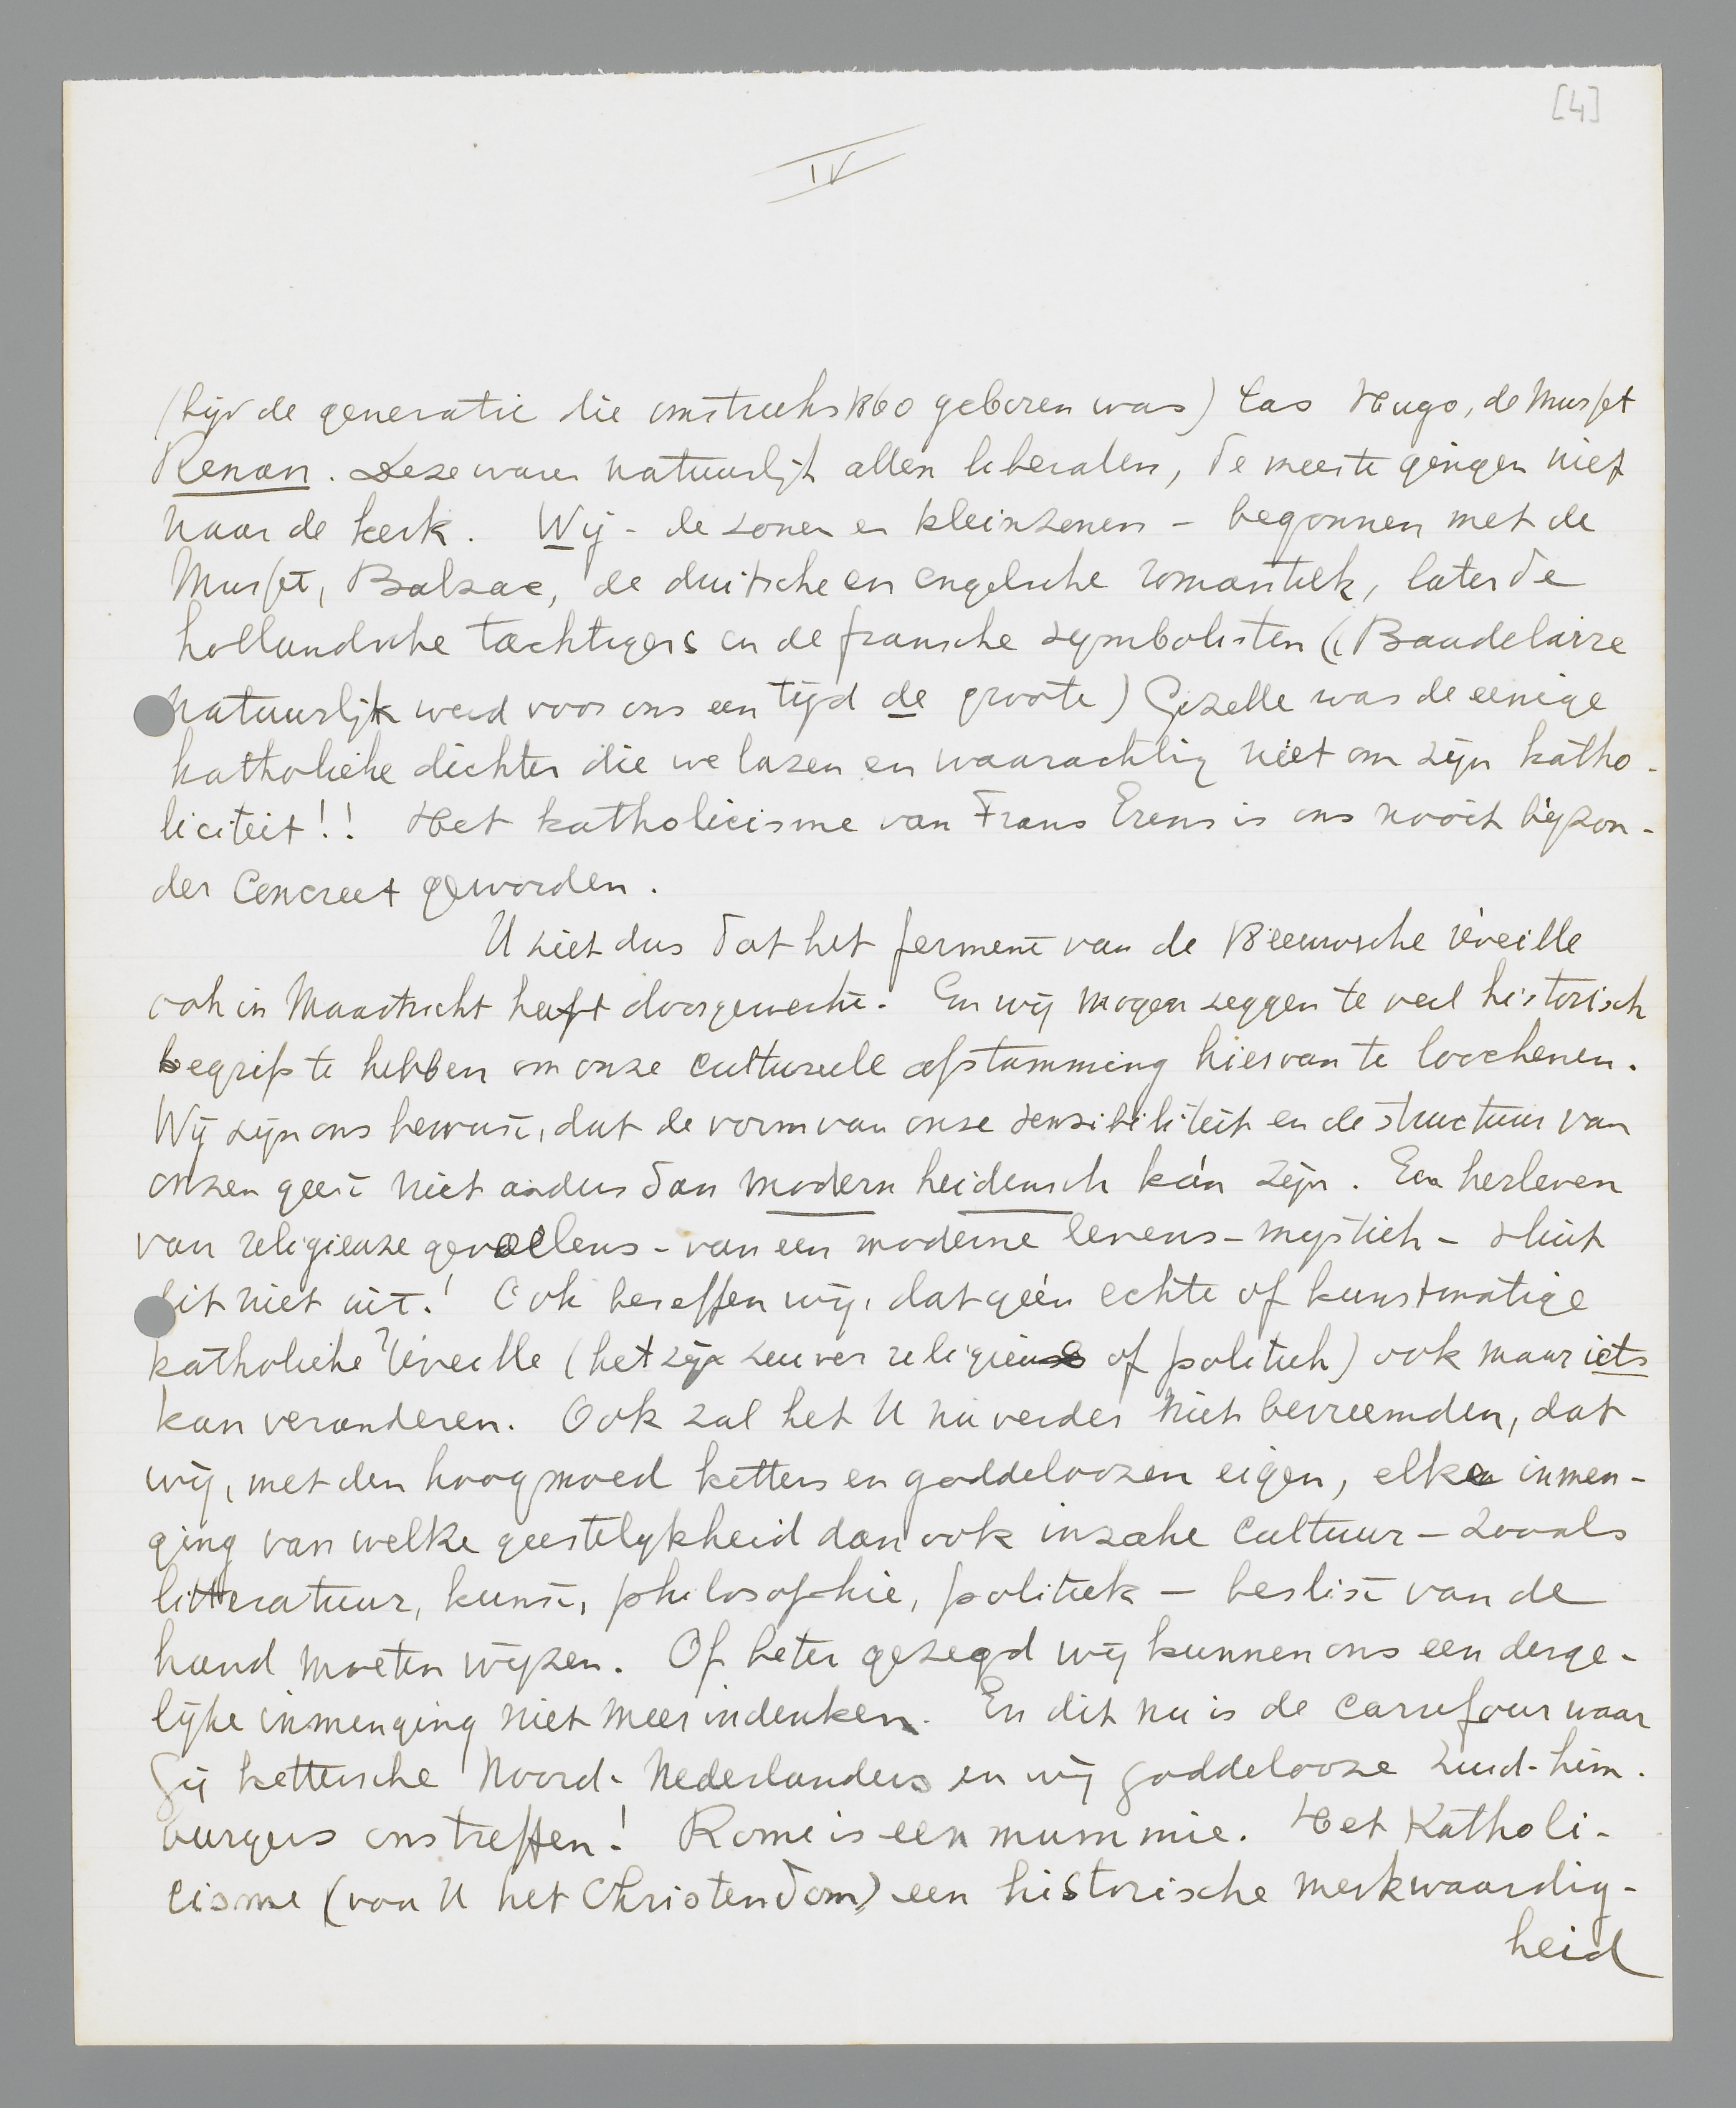 [4]
IV
(bijv de generatie die omstreeks 1860 geboren was) las Hugo, de Musset
Renan. Deze waren natuurlijk allen liberalen, de meeste gingen niet
naar de kerk. Wij - de zonen en kleinzonen - begonnen met de
Musset, Balzac, de duitsche en engelsche romantiek, later de
hollandsche tachtigers en de fransche symbolisten (Baudelaire
natuurlijk werd voor ons een tijd de groote) Gezelle was de eenige
katholieke dichter die we lazen en waarachtig niet om zijn katho-
liciteit!! Het katholicisme van Frans Erens is ons nooit bijzon-
der concreet geworden.
U ziet dus dat het ferment van de 18 eeuwsche réveille
ook in Maastricht heeft doorgewerkt. En wij mogen zeggen te veel historisch
begrip te hebben om onze cultureele afstamming hiervan te loochenen.
Wij zijn ons bewust, dat de vorm van onze sensibiliteit en de structuur van
onzen geest niet anders dan modern heidensch kán zijn. Een herleven
van religieuze gevoelens - van een moderne levens-mystiek - sluit
dit niet uit! Ook beseffen wij, dat géén echte of kunstmatige
katholieke réveille (het zijn zuiver religieus of politiek) ook maar iets
kan veranderen. Ook zal het U nu verder niet bevreemden, dat
wij, met den hoogmoed ketters en goddeloozen eigen, elke inmen-
ging van welke geestelijkheid dan ook inzake cultuur - zooals
litteratuur, kunst, philosophie, politiek - beslist van de
hand moeten wijzen. Of beter gezegd wij kunnen ons een derge-
lijke inmenging niet meer indenken. En dit nu is de carrefour waar
Gij kettersche Noord-Nederlanders en wij goddelooze Zuid-Lim-
burgers ons treffen! Rome is een mummie. Het Katholi-
cisme (voor U het Christendom) een historische merkwaardig-
heid